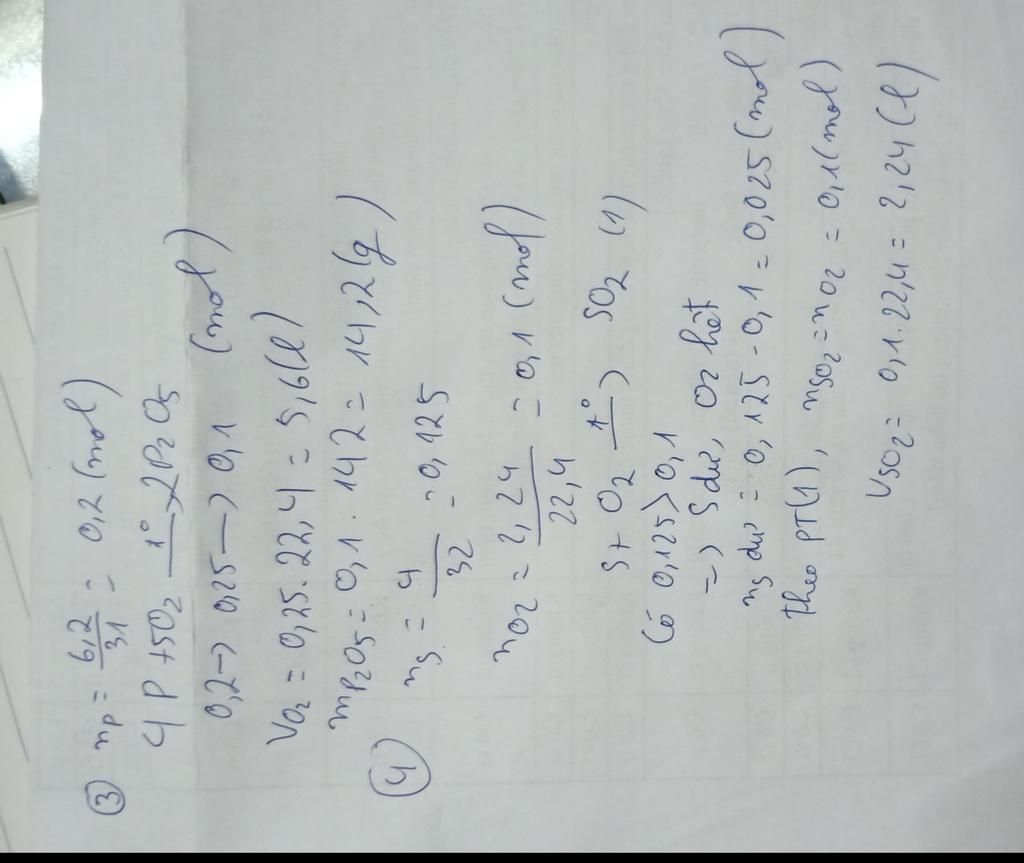 ③ nP = 6,2/31 = 0,2 (mol)
4P + 5O2 —t°→ 2P2O5
0,2 → 0,25 → 0,1 (mol)
VO2 = 0,25.22,4 = 5,6(l)
mP2O5 = 0,1.142 = 14,2(g)
④ nS = 4/32 = 0,125
nO2 = 2,24/22,4 = 0,1 (mol)
S + O2 —t°→ SO2 (1)
Có 0,125 > 0,1
=> S dư, O2 hết
nS dư = 0,125 - 0,1 = 0,025 (mol)
Theo PT(1), nSO2 = nO2 = 0,1(mol)
VSO2 = 0,1.22,4 = 2,24(l)